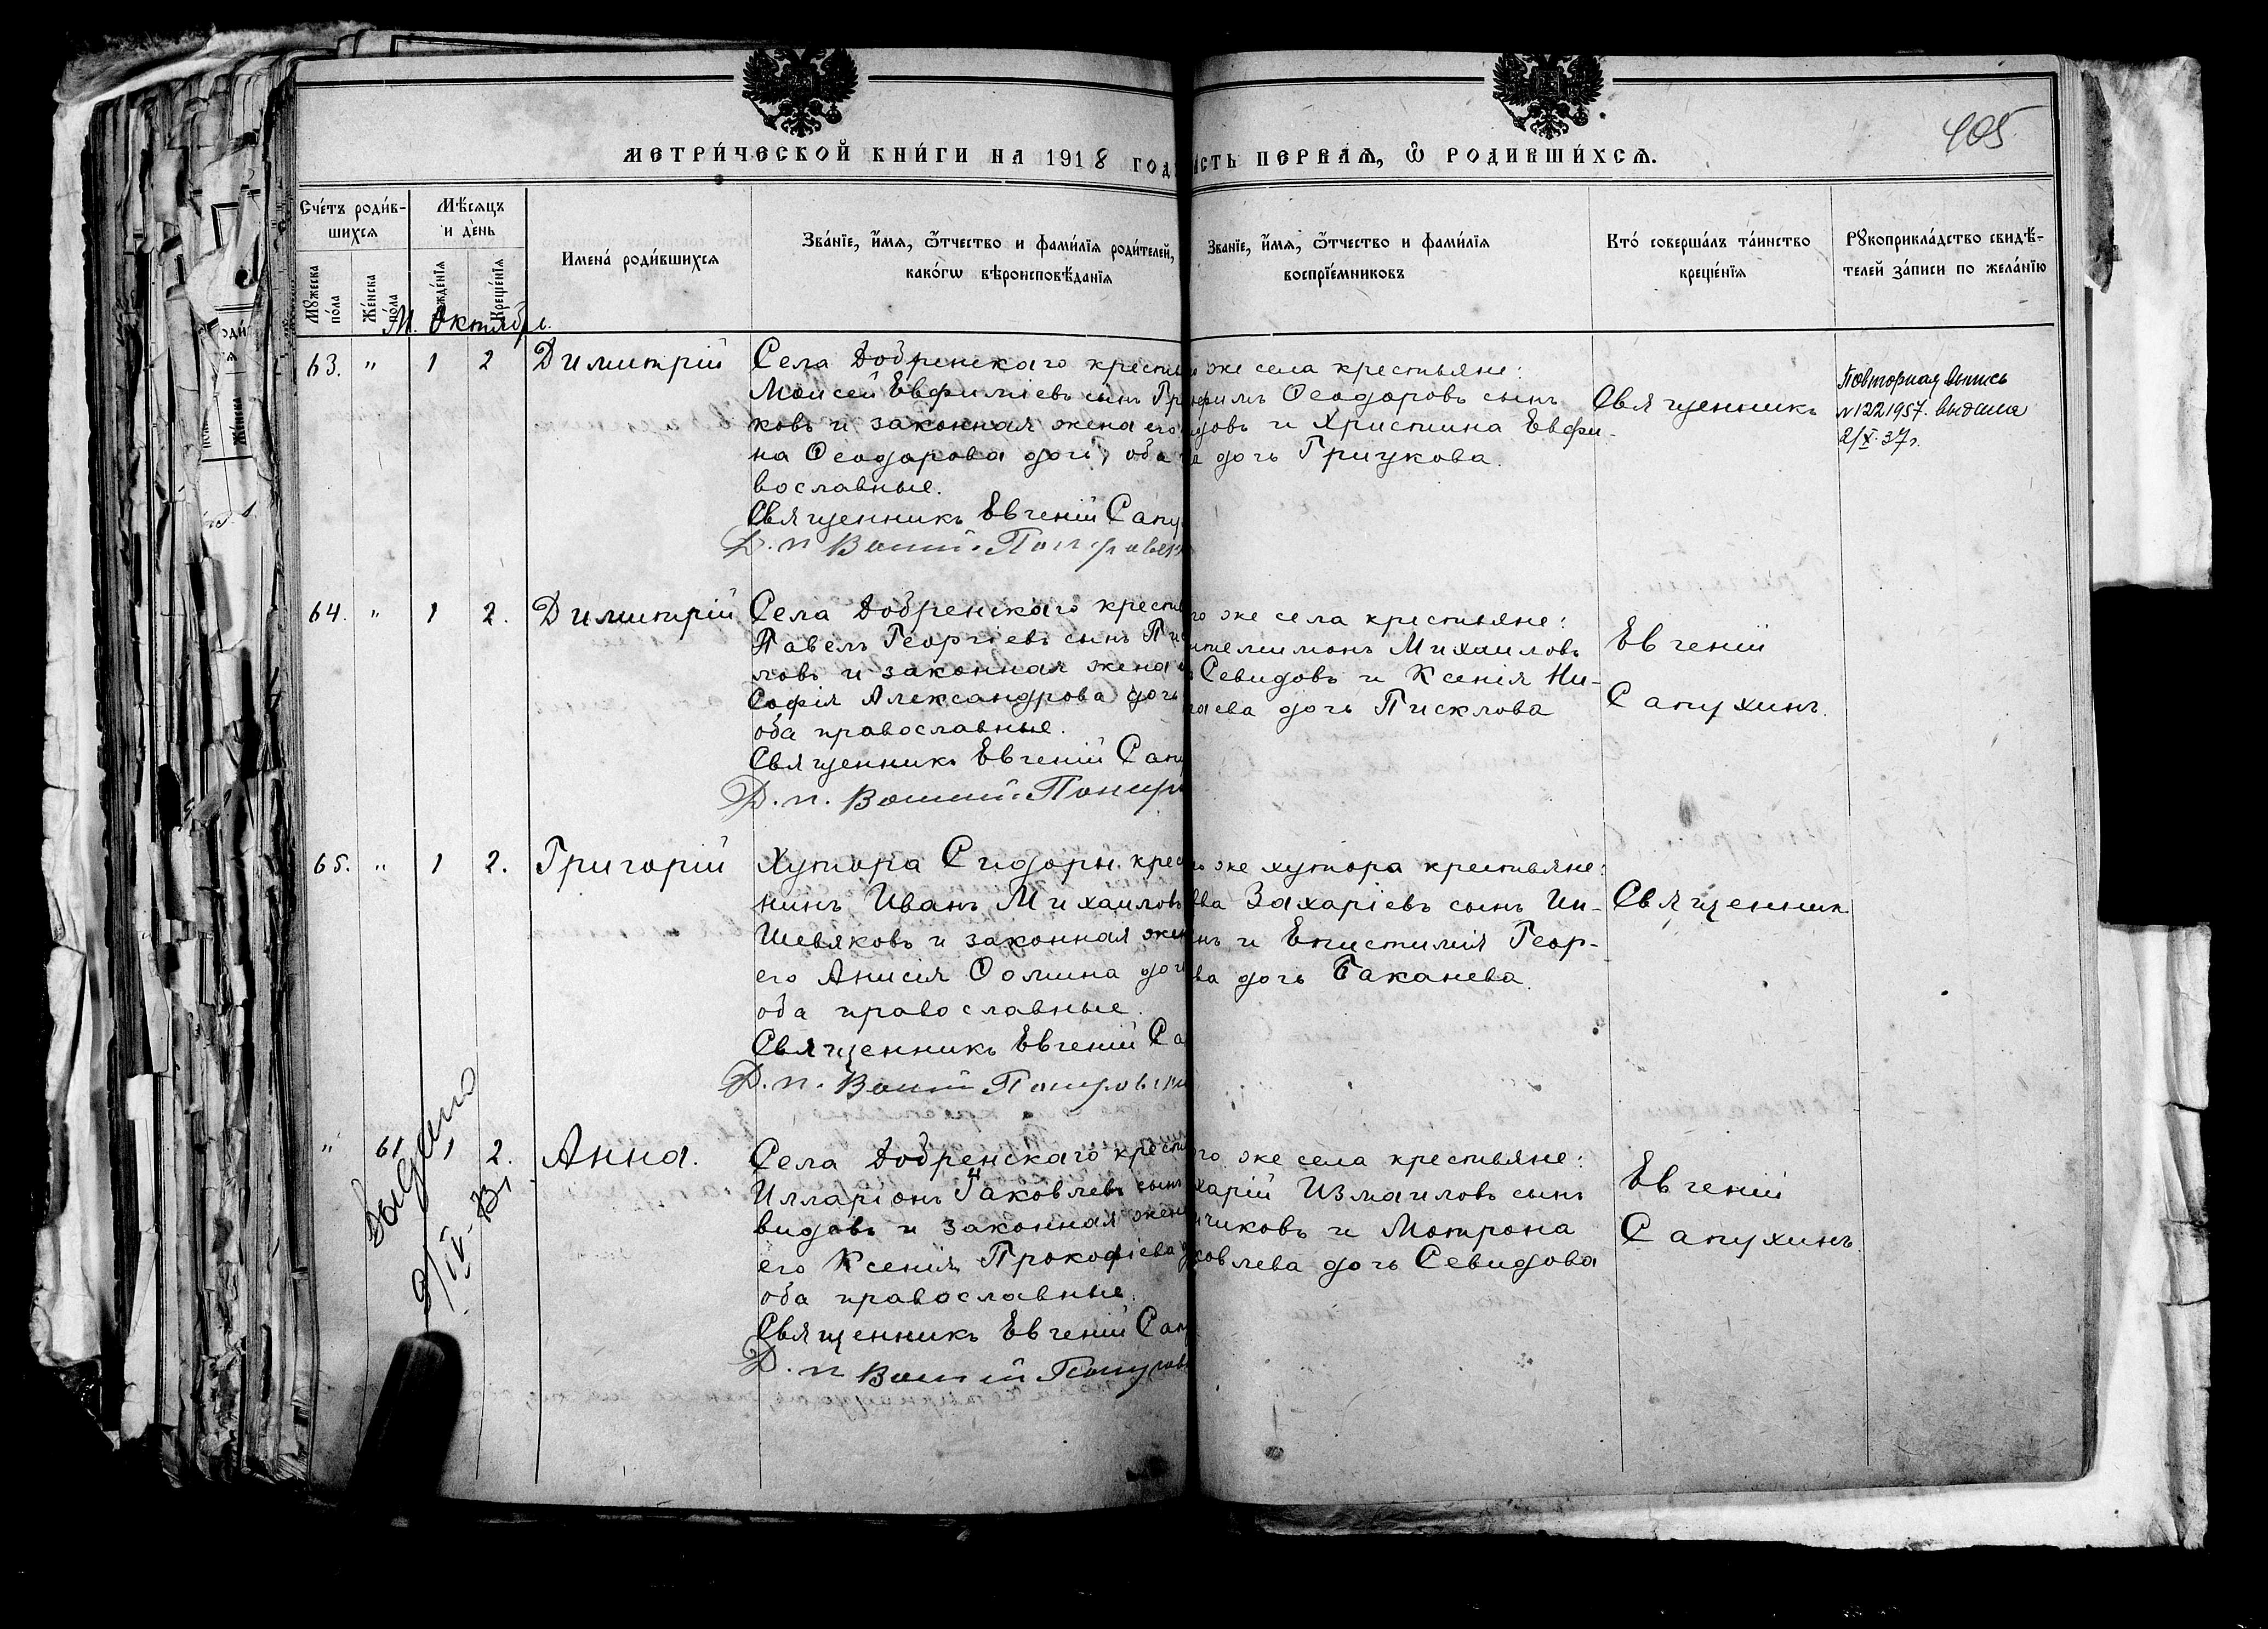 405
МЕТРИ́ЧЕСКОЙ КНИ́ГИ НА 1918 ГОД
СТЬ ПЕРВАЯ, Ѡ҆ РОДИВШИ́ХСЯ.
Сче́тъ роди́в-
шихся
Мѣ́сяцъ
и де́нь
Му́жеска
по́ла
Же́нска
по́ла
Рожде́нїя
Креще́нїя
Имена́ роди́вшихся
Зва́нїе, и҆́мя, ѻ҆́тчество и фами́лїя роди́телей,
како́гѡ вѣроисповѣ́данїя
Зва́нїе, и҆́мя, ѻ҆́тчество и фами́лїя
воспрїе́мниковъ
Кто́ соверша́лъ та́инство
креще́нїя
Рꙋкоприкла́дство свидѣ́-
телей за́писи по жела́нїю
М. Октябрь.
63. " 1 2 Димитрій
Села Добренскаго крестья
Моисей Евфиміевъ сынъ Гр
ковъ и законная жена его
на Ѳеодорова дочь, оба
вославные.
Священникъ Евгеній Сапу
же села крестьяне:
фимъ Ѳеодоровъ сынъ
довъ и Христина Евфи-
дочь Грицкова.
Священникъ
Повторная выпись
№1221957. выдана
2/X.37г.
64. " 1 2. Димитрій
Села Добренскаго крестья
Павелъ Георгіевъ сынъ Пис
ловъ и законная жена
Софія Александрова дочь
оба православные.
Священникъ Евгеній Сапу
го же села крестьяне:
нтелимонъ Михаиловъ
Севидовъ и Ксенія Ни-
лаева дочь Писклова
Евгеній
Сапухинъ.
65. " 1 2. Григорій
Хутора Сидорн. крес
нинъ Иванъ Михаиловъ
Шевяковъ и законная жен
его Анисія Ѳомина доч
оба православные.
Священникъ Евгеній Са
же хутора крестьяне:
вва Захаріевъ сынъ Ши-
нъ и Епистимія Геор-
ва дочь Баканева.
Священник
" 61 1 2. Анна.
Выдано
9/IV-
Села Добренскаго крестья
Илларіонъ Іаковлевъ сынъ
видовъ и законная жен
его Ксенія Прокофіева
оба православные.
Священникъ Евгеній Сап
го же села крестьяне:
харій Измаиловъ сынъ
чиковъ и Мотрона
ковлева дочь Севидова
Евгеній
Сапухинъ.